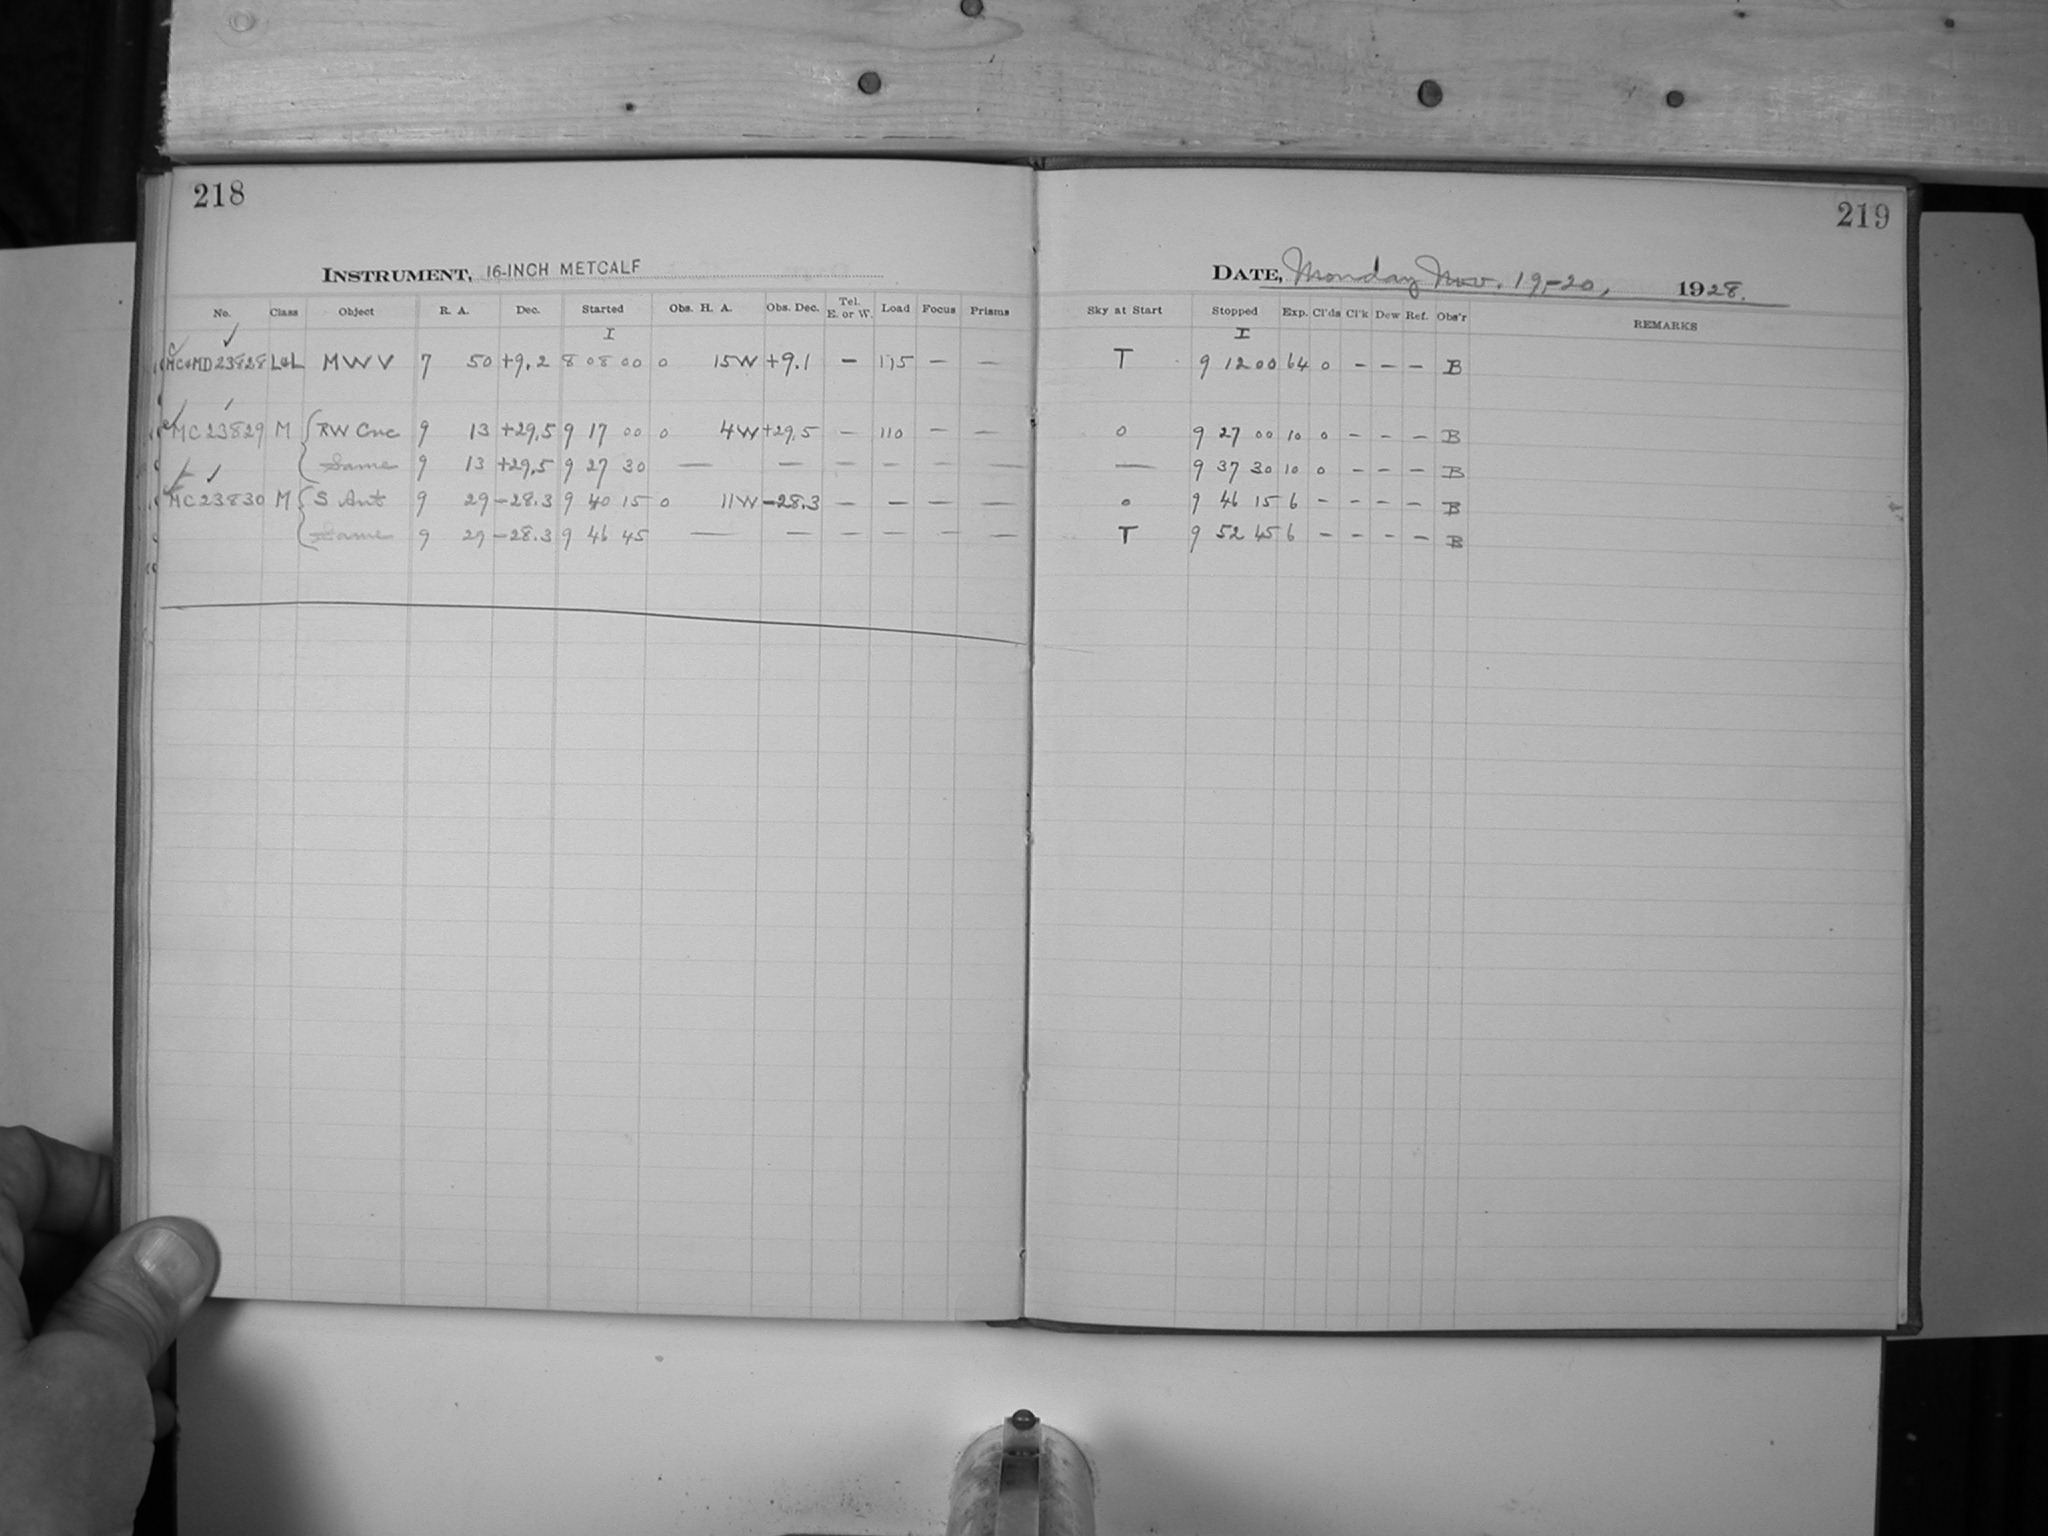 218
INSTRUMENT, 16-INCH METCALF
No. Class Object R. A. Dec. Started Obs. H. A. Obs. Dec. Tel. E. or W. Load Focus Prisms
I
MC+MD23828 L+L MWV 7 50 +9.2 8 08 00 0 15W +9.1 – 115 – –
MC23829 M RW Cnc 9 13 +29.5 9 17 00 0 4W +29.5 – 110 – –
Same 9 13 +29.5 9 27 30 — — – – – —
MC23830 M S Ant 9 29 -28.3 9 40 15 0 11W -28.3 – – – –
Same 9 29 -28.3 9 46 45 — — – – – —
219
DATE, Monday Nov. 19-20, 1928.
Sky at Start Stopped Exp. Cl'ds Cl'k Dew Ref. Obs'r REMARKS
I
T 9 12 00 64 0 – – – B
0 9 27 00 10 0 – – – B
— 9 37 30 10 0 – – – B
0 9 46 15 6 – – – – B
T 9 52 45 6 – – – – B